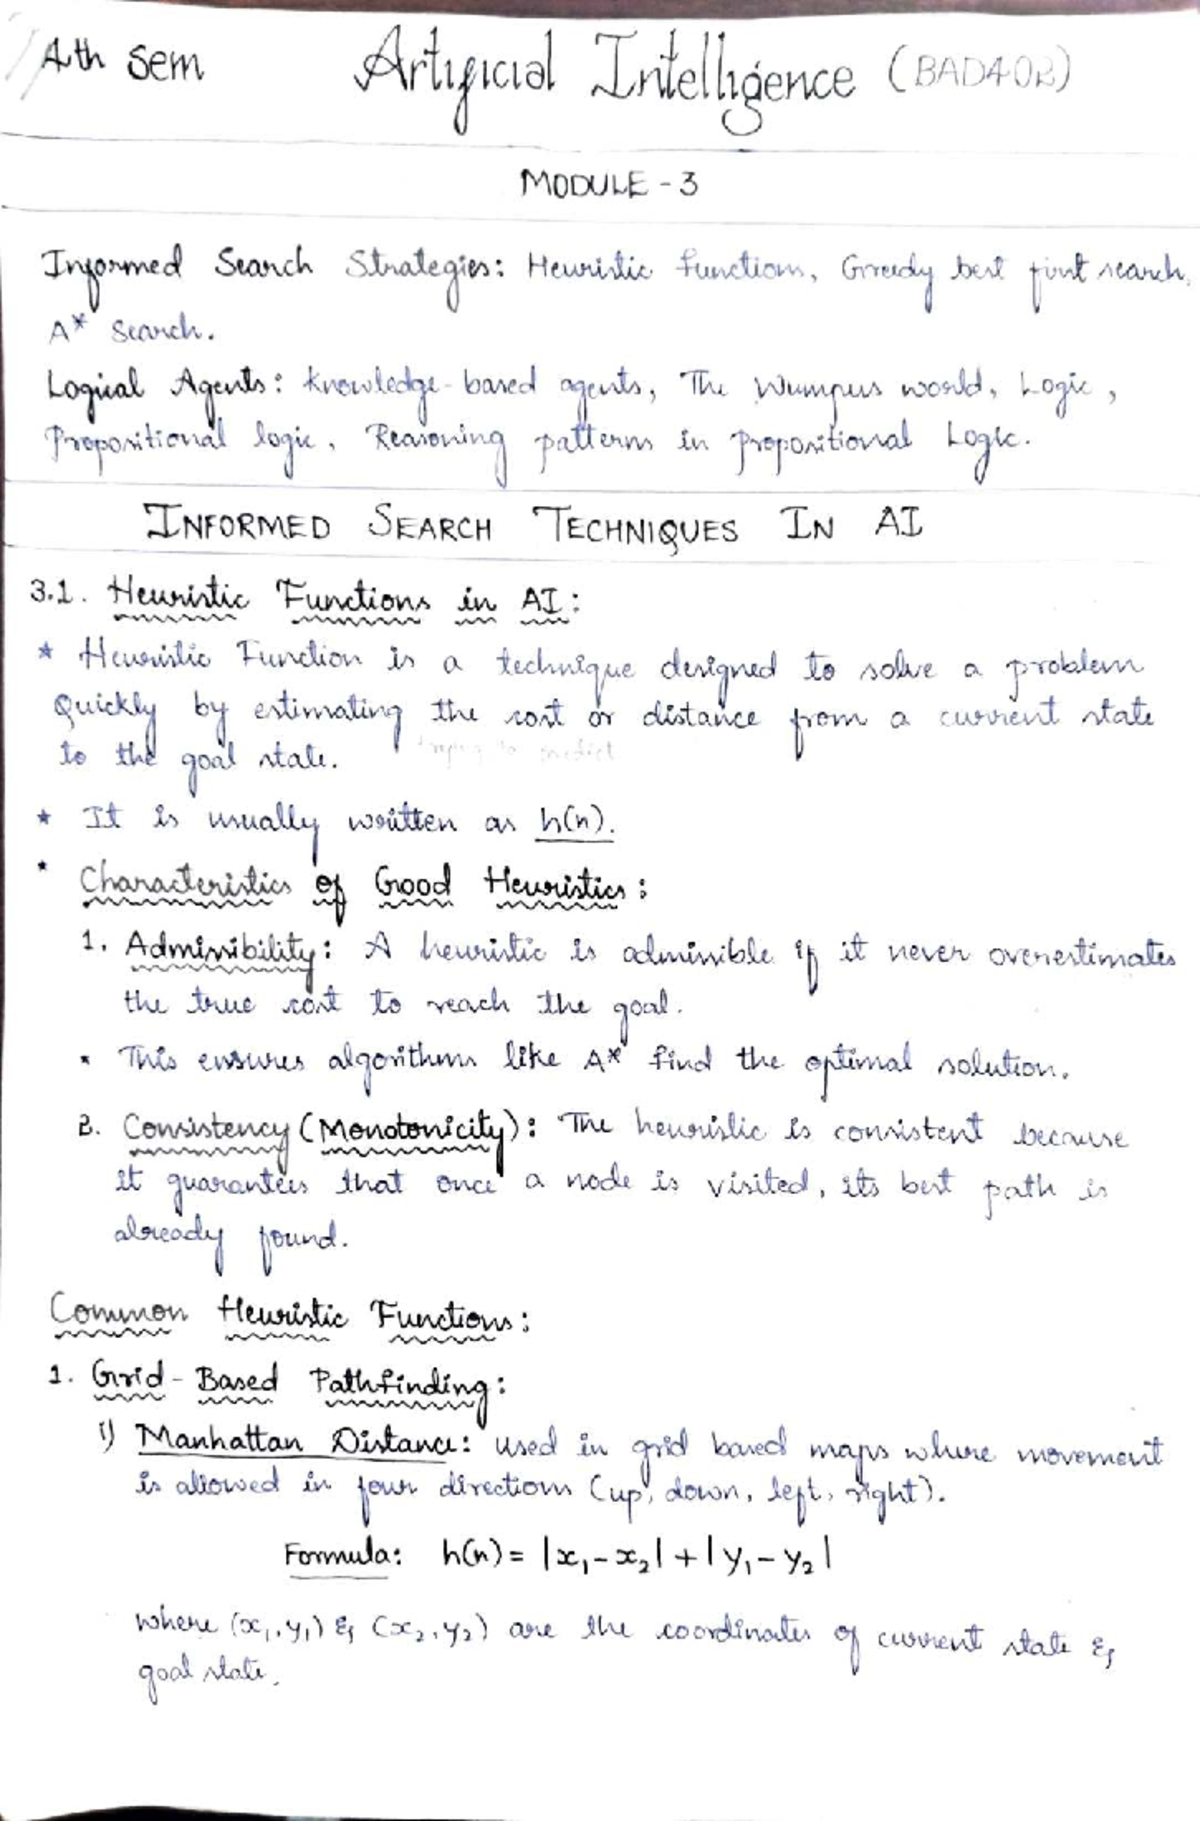 4th Sem Artificial Intelligence (BAD402)
MODULE - 3
Informed Search Strategies: Heuristic functions, Greedy best first search,
A* Search.
Logical Agents: knowledge-based agents, The Wumpus world, Logic,
Propositional logic, Reasoning patterns in propositional Logic.
INFORMED SEARCH TECHNIQUES IN AI
3.1. Heuristic Functions in AI:
* Heuristic Function is a technique designed to solve a problem
Quickly by estimating the cost or distance from a current state
trying to predict
to the goal state.
* It is usually written as h(n).
* Characteristics of Good Heuristics:
1. Admissibility: A heuristic is admissible if it never overestimates
the true cost to reach the goal.
* This ensures algorithms like A* find the optimal solution.
2. Consistency (Monotonicity): The heuristic is consistent because
it guarantees that once a node is visited, its best path is
already found.
Common Heuristic Functions:
1. Grid-Based Pathfinding:
i) Manhattan Distance: used in grid based maps where movement
is allowed in four directions (up, down, left, right).
Formula: h(n) = |x₁ - x₂| + |y₁ - y₂|
where (x₁, y₁) & (x₂, y₂) are the coordinates of current state &
goal state.